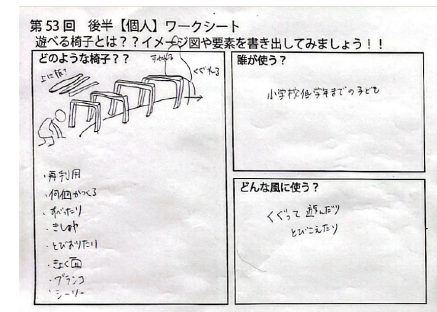 第53回 後半【個人】ワークシート
遊べる椅子とは??イメージ図や要素を書き出してみましょう!!
どのような椅子??
すわれる
くぐれる
・再利用
・何個かつくる
・すべったり
・きしゃ
・とびおりたり
・きょく面
・ブランコ
・シーソー
誰が使う?
小学校低学年までの子ども
どんな風に使う?
くぐって遊んだり
とびこえたり